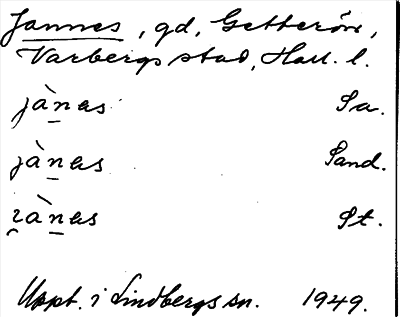 Jannes, gd, Getterön,
Varbergs stad, Hall. l.
jànas Sa.
jànas Sand.
ànas St.
Uppt. i Lindbergs sn. 1949.